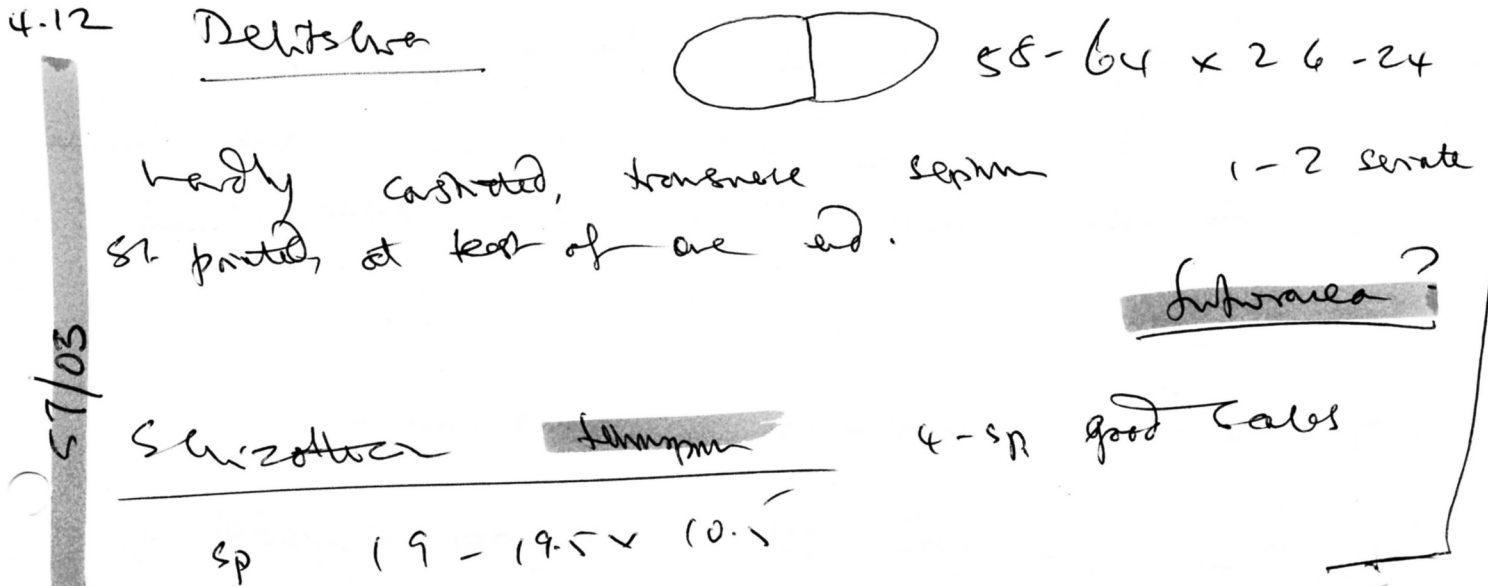 4.12 Delitschia 58-64 x 26-24
hardly constricted, transverse septum 1-2 seriate
sl. pointed, at least at one end.
furfuracea?
57/03
Schizothecium 4-sp good scales
sp 19-19.5 x 10.5